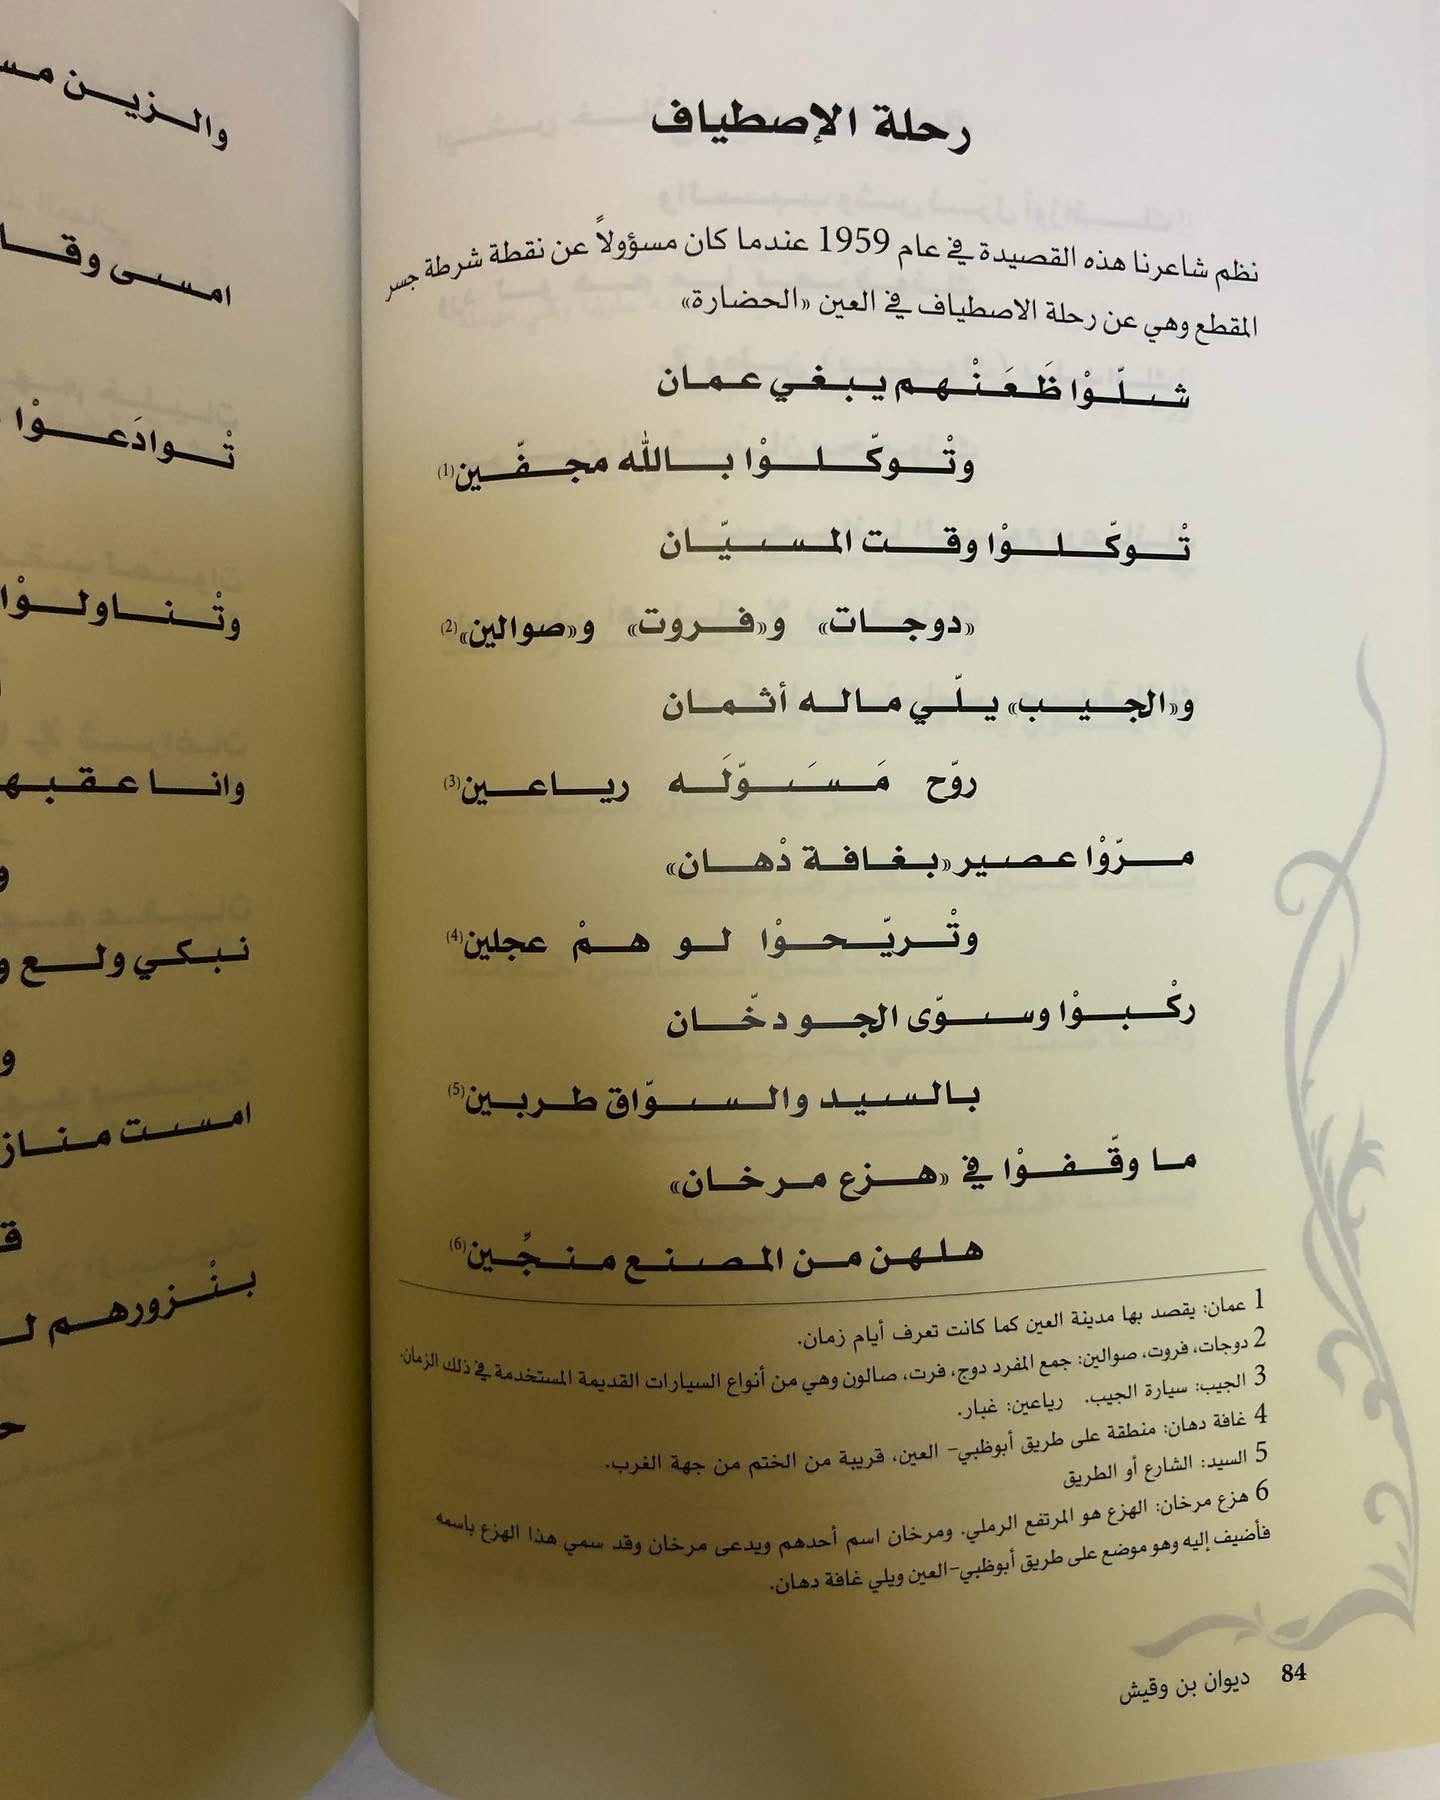 رحلة الإصطياف
نظم شاعرنا هذه القصيدة في عام 1959 عندما كان مسؤولاً عن نقطة شرطة جسر
المقطع وهي عن رحلة الاصطياف في العين «الحضارة»
شلّوْا ظَعَنْهم يبغي عمان
وتْوكّلوْا بالله مجفّين(1)
تْوكّلوْا وقت المسيّان
«دوجات» و«فروت» و«صوالين»(2)
و«الجيب» يلّي ماله أثمان
روّح مَسَوّلَه رياعين(3)
مرّوْا عصير «بغافة دْهان»
وتْريّحوْا لو همْ عجلين(4)
ركْبوْا وسوّى الجو دخّان
بالسيد والسوّاق طربين(5)
ما وقّفوْا في «هزع مرخان»
هلهن من المصنع منجِّين(6)
1 عمان: يقصد بها مدينة العين كما كانت تعرف أيام زمان.
2 دوجات، فروت، صوالين: جمع المفرد دوج، فرت، صالون وهي من أنواع السيارات القديمة المستخدمة في ذلك الزمان.
3 الجيب: سيارة الجيب. رياعين: غبار.
4 غافة دهان: منطقة على طريق أبوظبي- العين، قريبة من الختم من جهة الغرب.
5 السيد: الشارع أو الطريق
6 هزع مرخان: الهزع هو المرتفع الرملي. ومرخان اسم أحدهم ويدعى مرخان وقد سمي هذا الهزع باسمه
فأضيف إليه وهو موضع على طريق أبوظبي-العين ويلي غافة دهان.
84 ديوان بن وقيش
والزين
امسى
تْوادَعوْا
وتْناولوْا
وانا
نبكي ولع
امست
بنْزورهم